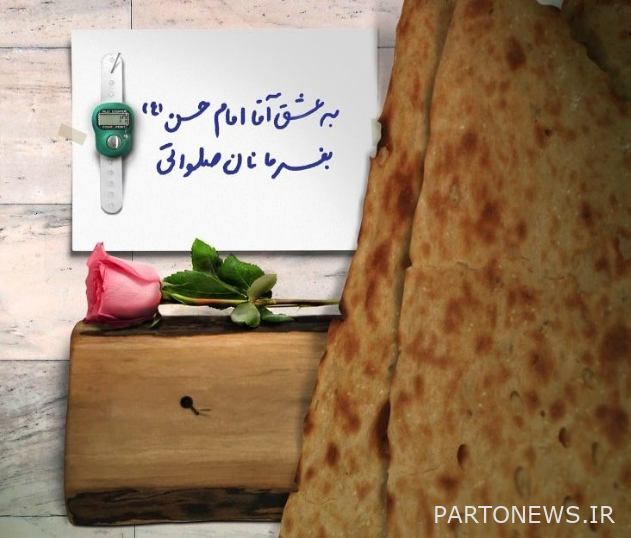 به عشق آقا امام حسن (ع)
بفرما نان صلواتی
PARTONEWS.IR